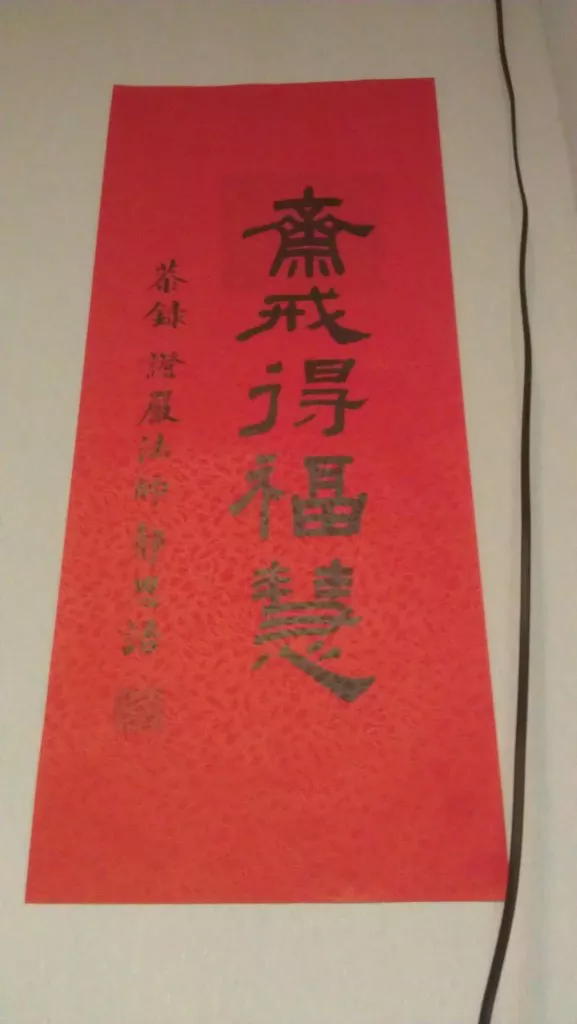 齋戒得福慧
恭錄 證嚴法師 靜思語